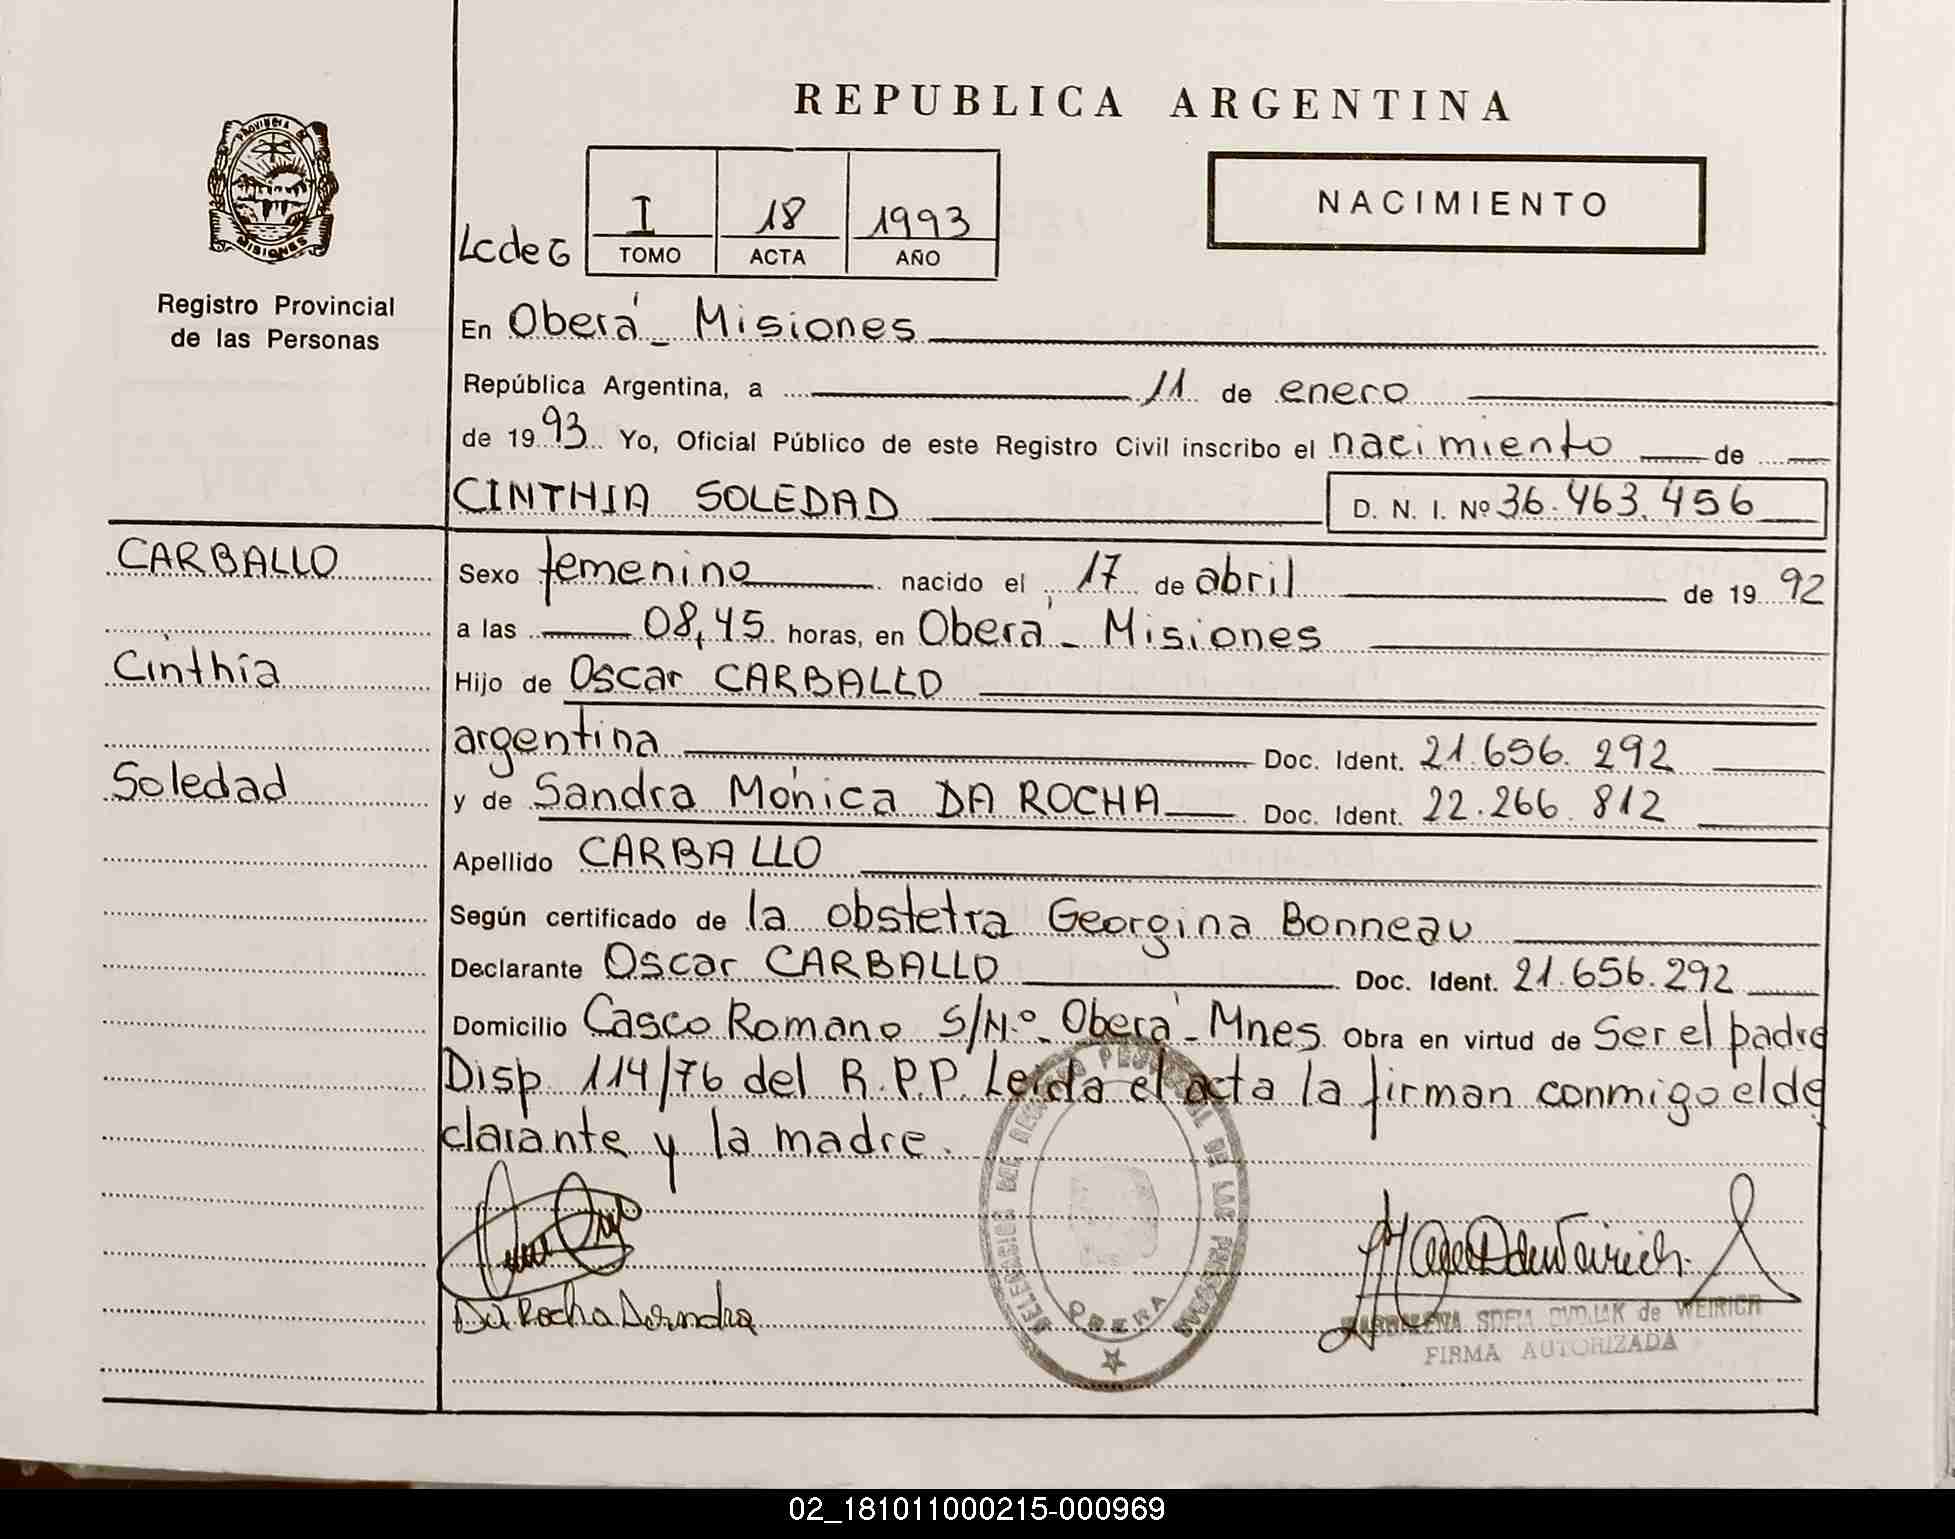 REPUBLICA ARGENTINA
PROVINCIA DE
MISIONES
Registro Provincial
de las Personas
NACIMIENTO
Lcde6 I 18 1993
TOMO ACTA AÑO
En Oberá - Misiones
República Argentina, a 11 de enero
de 1993 Yo, Oficial Público de este Registro Civil inscribo el nacimiento de
CINTHIA SOLEDAD D. N. I. Nº 36.463.456
CARBALLO
Cinthia
Soledad
Sexo femenino nacido el 17 de abril de 1992
a las 08,45 horas, en Oberá - Misiones
Hijo de Oscar CARBALLO
argentina Doc. Ident. 21.656.292
y de Sandra Mónica DA ROCHA Doc. Ident. 22.266.812
Apellido CARBALLO
Según certificado de la obstetra Georgina Bonneau
Declarante Oscar CARBALLO Doc. Ident. 21.656.292
Domicilio Casco Romano S/Nº - Oberá - Mnes Obra en virtud de Ser el padre
Disp 114/76 del R.P.P. Leida el acta la firman conmigo el de
clarante y la madre.
DEL PROVINCIAL DE LAS PERSONAS
OBERA
Da Rocha Sandra
SOFIA de WEIRICH
FIRMA AUTORIZADA
02_181011000215-000969